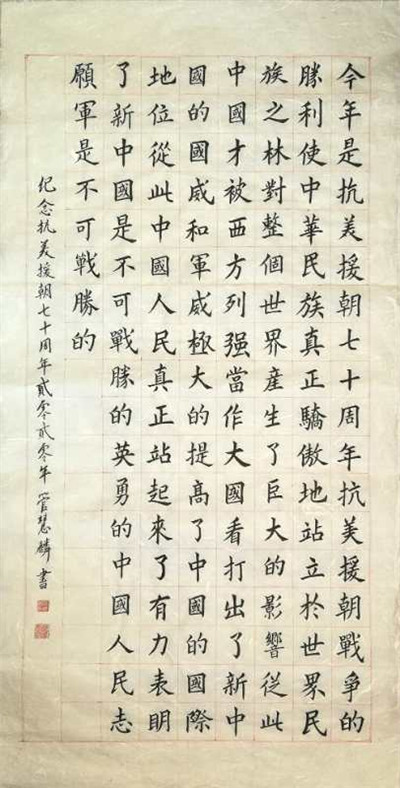 今年是抗美援朝七十周年抗美援朝戰爭的
勝利使中華民族真正驕傲地站立於世界民
族之林對整個世界産生了巨大的影響從此
中國才被西方列强當作大國看打出了新中
國的國威和軍威極大的提高了中國的國際
地位從此中國人民真正站起來了有力表明
了新中國是不可戰勝的英勇的中國人民志
願軍是不可戰勝的
纪念抗美援朝七十周年貳零貳零年 管慧麟書